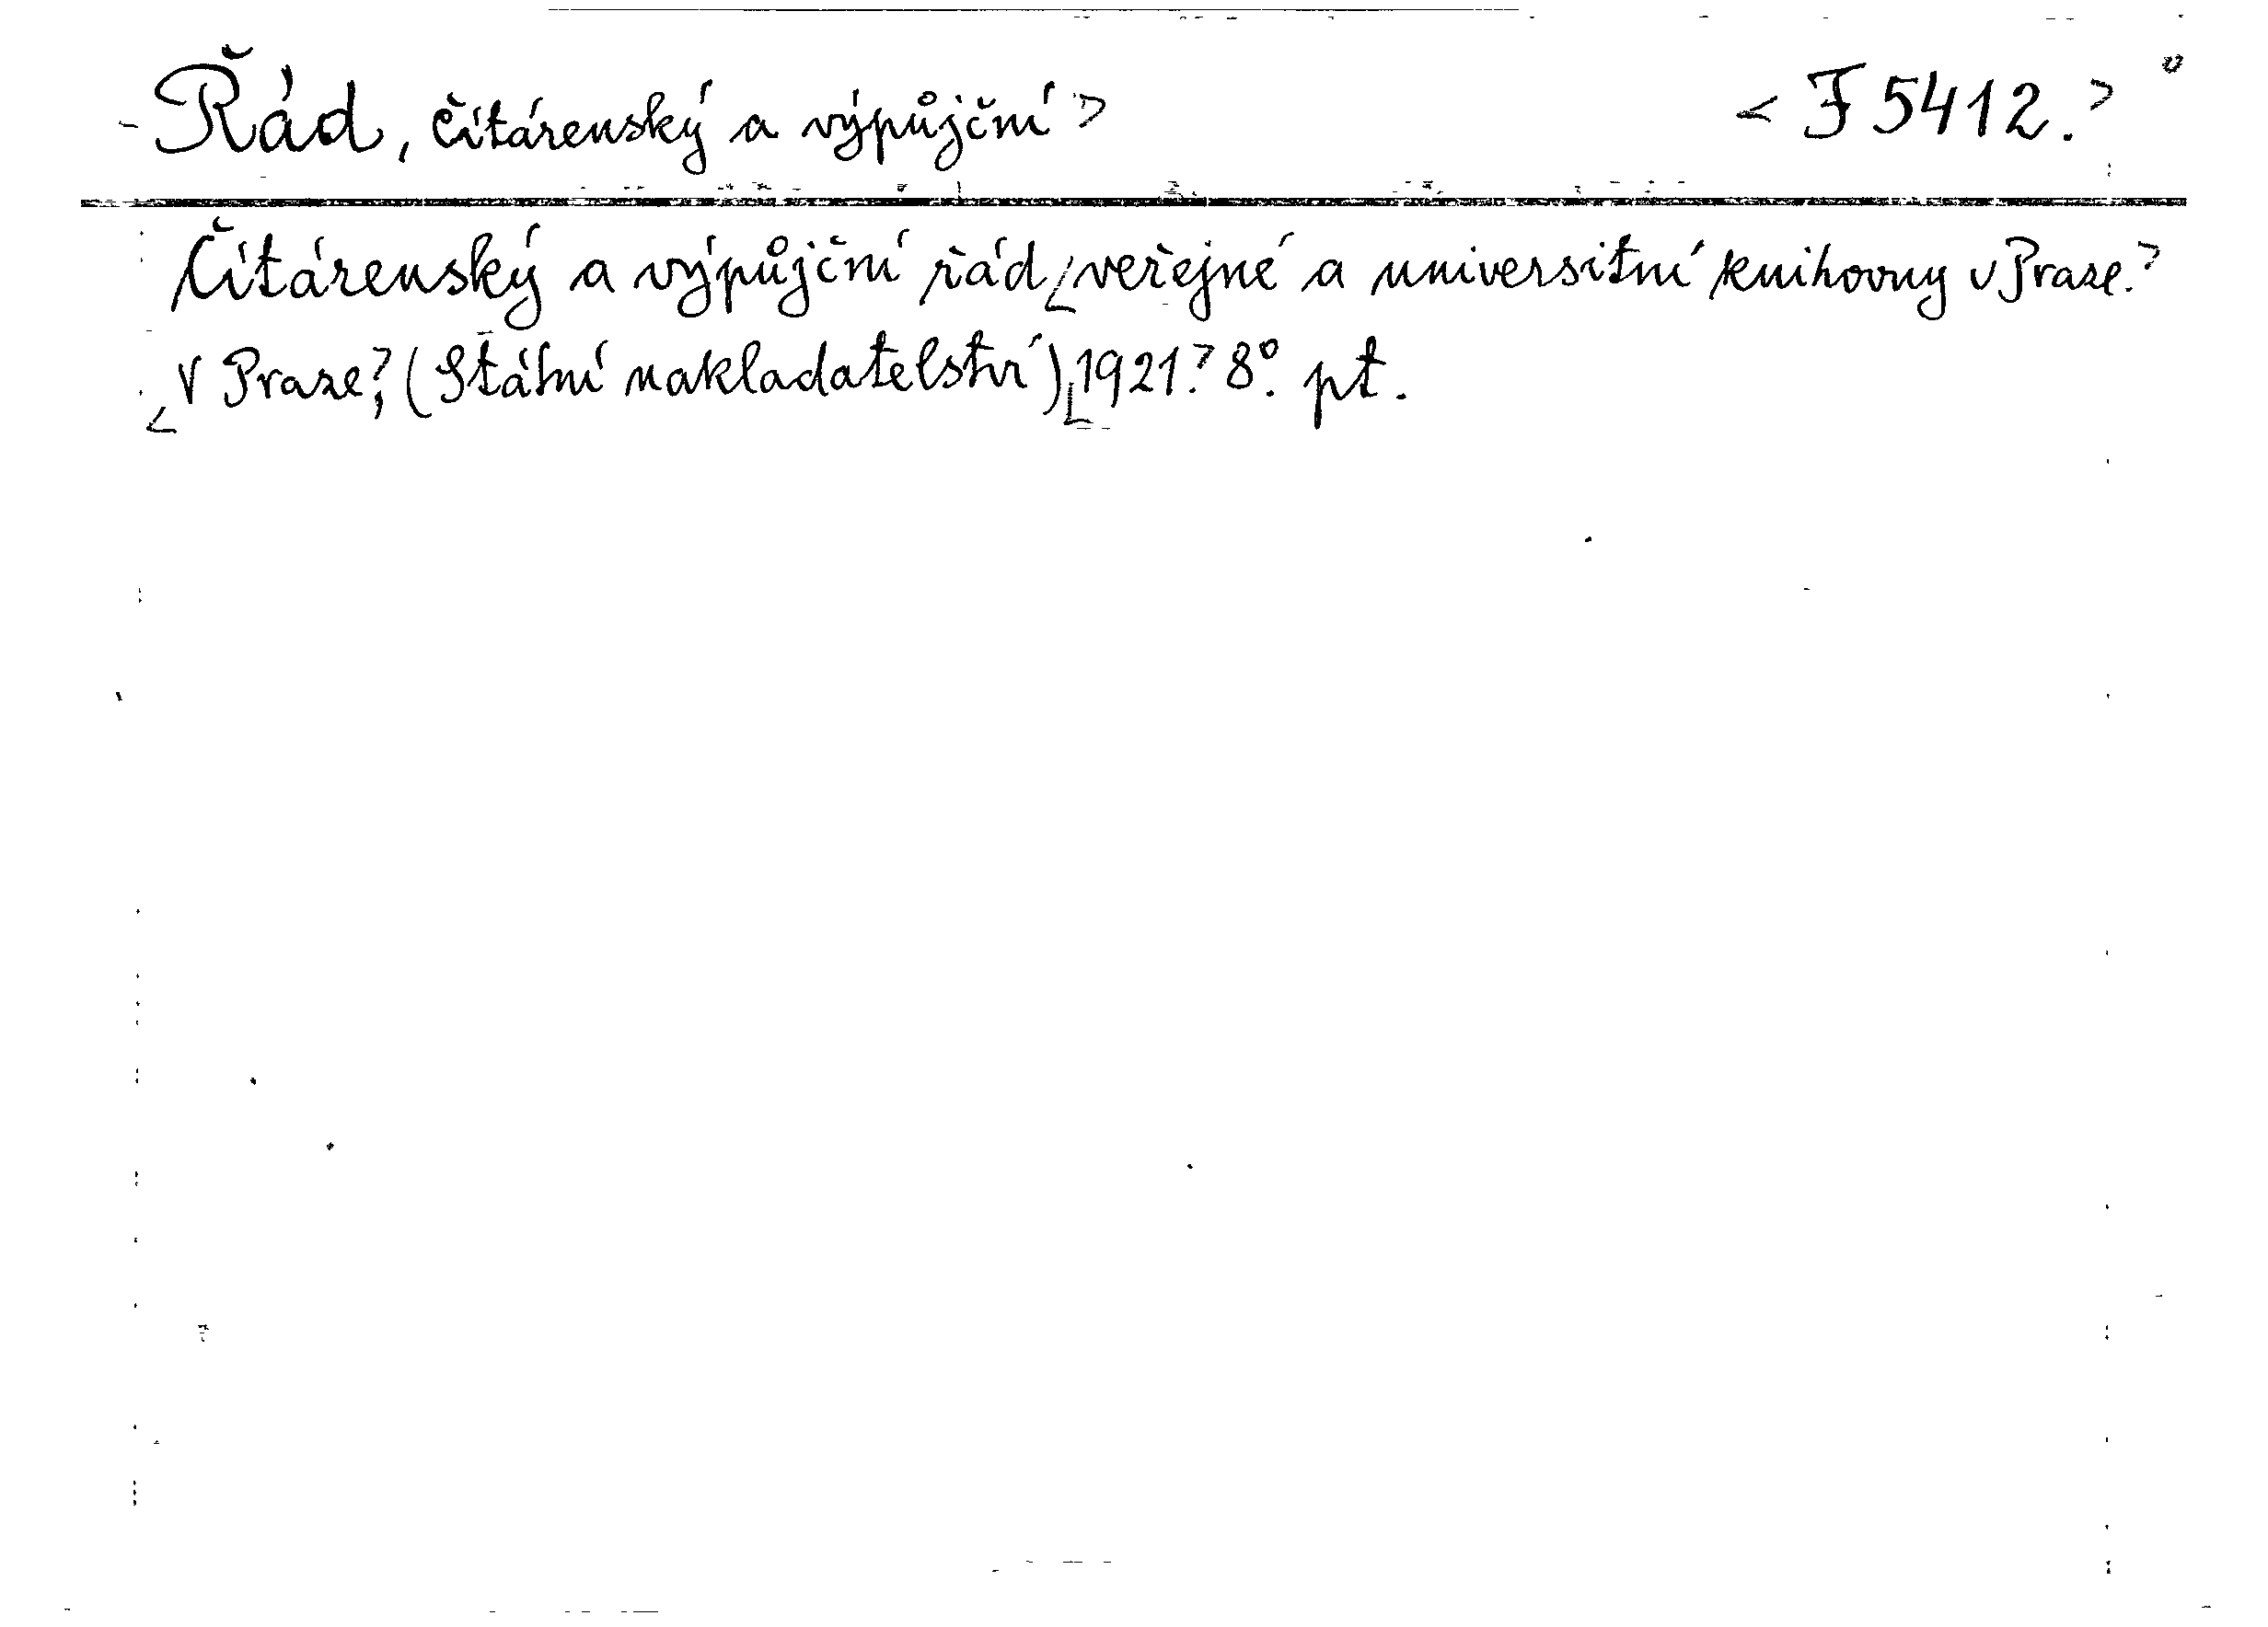 Řád, čítárenský a výpůjční> <F 5412.>
Čítárenský a výpůjční řád veřejné a universitní knihovny v Praze.
V Praze, (Státní nakladatelství) 1921. 8°. př.